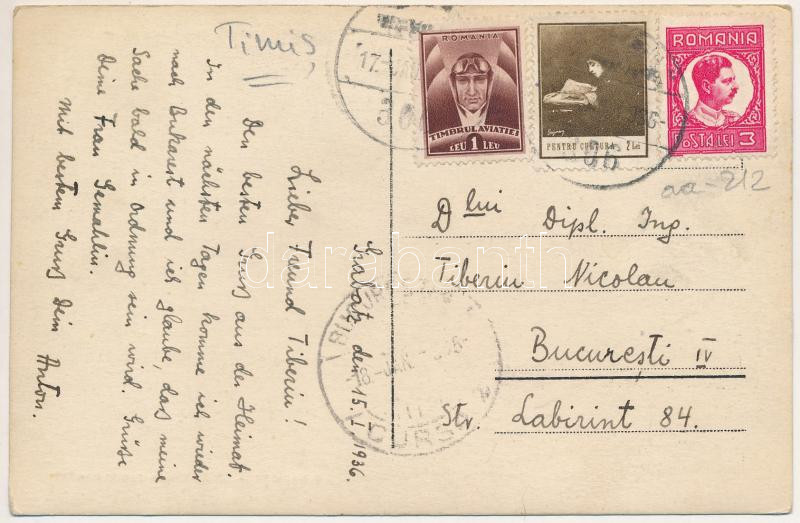 Timiș
Grabatz den 15. I. 1936.
Lieber Freund Tiberiu!
Den besten Gruß aus der Heimat.
In den nächsten Tagen komme ich wieder
nach Bukarest und ich glaube, das meine
Sache bald in Ordnung sein wird. Grüße
Deine Frau Gemahlin.
Mit bestem Gruß Dein Anton.
ROMANIA
TIMBRUL AVIATIEI
LEU 1 LEU
PENTRU CULTURA 2 Lei
ROMANIA
POSTA LEI 3
aa-212
Dlui Dipl. Ing.
Tiberiu Nicolau
București IV
Str. Labirint 84.
darabanth